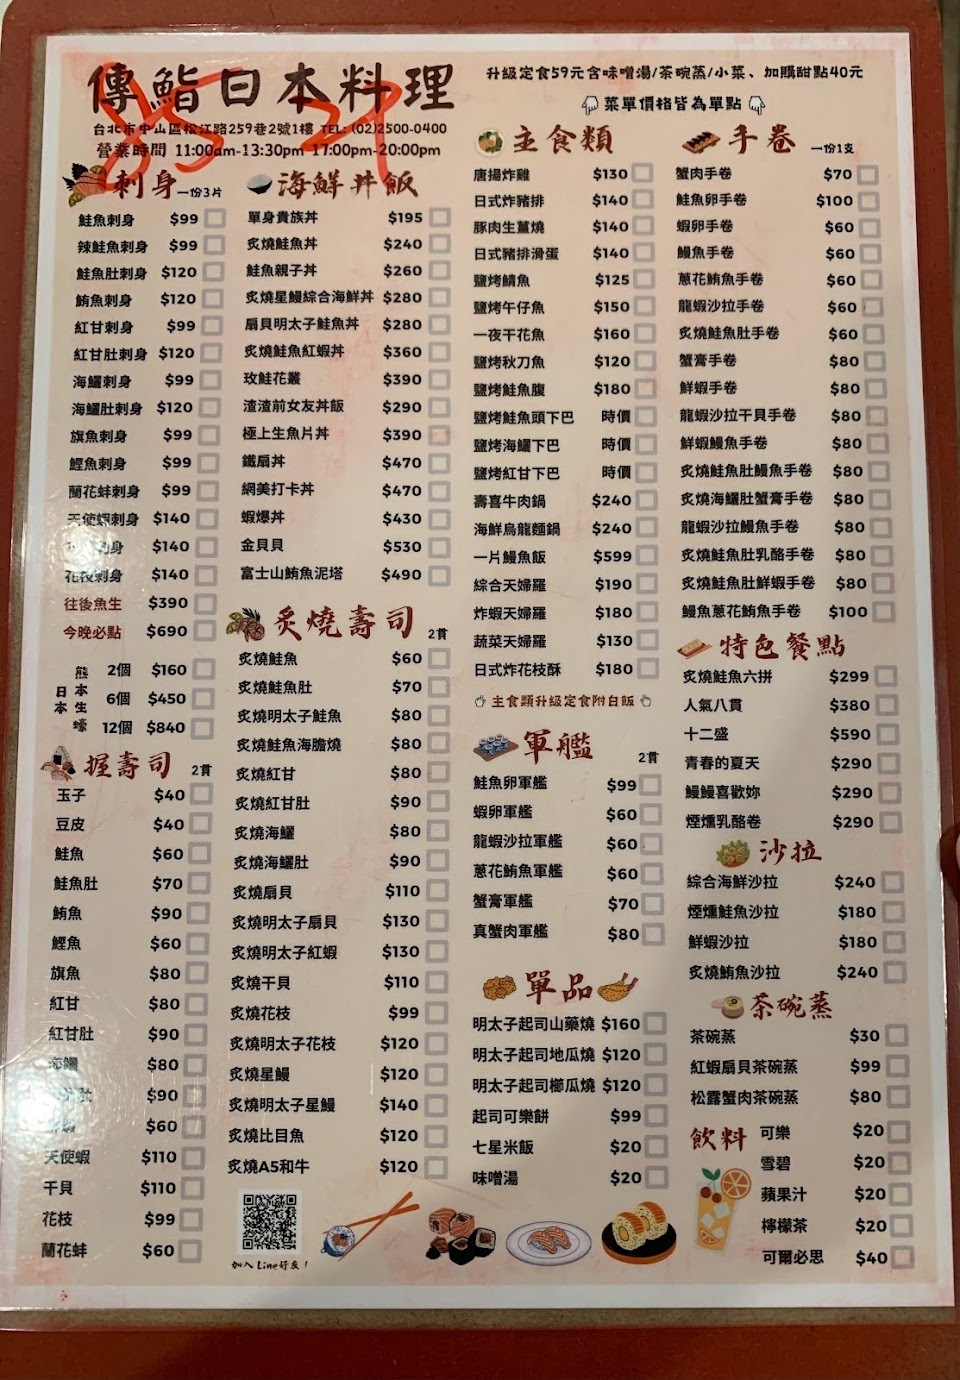 傳鮨日本料理
台北市中山區松江路259巷2號1樓 TEL: (02)2500-0400
營業時間 11:00am-13:30pm 17:00pm-20:00pm
升級定食59元含味噌湯/茶碗蒸/小菜、加購甜點40元
菜單價格皆為單點
刺身 一份3片
鮭魚刺身 $99
辣鮭魚刺身 $99
鮭魚肚刺身 $120
鮪魚刺身 $120
紅甘刺身 $99
紅甘肚刺身 $120
海鱺刺身 $99
海鱺肚刺身 $120
旗魚刺身 $99
鰹魚刺身 $99
蘭花蚌刺身 $99
天使蝦刺身 $140
身 $140
花枝刺身 $140
往後魚生 $390
今晚必點 $690
日本熊本生蠔
2個 $160
6個 $450
12個 $840
握壽司 2貫
玉子 $40
豆皮 $40
鮭魚 $60
鮭魚肚 $70
鮪魚 $90
鰹魚 $60
旗魚 $80
紅甘 $80
紅甘肚 $90
海鱺 $80
$90
$60
天使蝦 $110
干貝 $110
花枝 $99
蘭花蚌 $60
海鮮丼飯
單身貴族丼 $195
炙燒鮭魚丼 $240
鮭魚親子丼 $260
炙燒星鰻綜合海鮮丼 $280
扇貝明太子鮭魚丼 $280
炙燒鮭魚紅蝦丼 $360
玫鮭花叢 $390
渣渣前女友丼飯 $290
極上生魚片丼 $390
鐵扇丼 $470
網美打卡丼 $470
蝦爆丼 $430
金貝貝 $530
富士山鮪魚泥塔 $490
炙燒壽司 2貫
炙燒鮭魚 $60
炙燒鮭魚肚 $70
炙燒明太子鮭魚 $80
炙燒鮭魚海膽燒 $80
炙燒紅甘 $80
炙燒紅甘肚 $90
炙燒海鱺 $80
炙燒海鱺肚 $90
炙燒扇貝 $110
炙燒明太子扇貝 $130
炙燒明太子紅蝦 $130
炙燒干貝 $110
炙燒花枝 $99
炙燒明太子花枝 $120
炙燒星鰻 $120
炙燒明太子星鰻 $140
炙燒比目魚 $120
炙燒A5和牛 $120
加入Line好友！
主食類
唐揚炸雞 $130
日式炸豬排 $140
豚肉生薑燒 $140
日式豬排滑蛋 $140
鹽烤鯖魚 $125
鹽烤午仔魚 $150
一夜干花魚 $160
鹽烤秋刀魚 $120
鹽烤鮭魚腹 $180
鹽烤鮭魚頭下巴 時價
鹽烤海鱺下巴 時價
鹽烤紅甘下巴 時價
壽喜牛肉鍋 $240
海鮮烏龍麵鍋 $240
一片鰻魚飯 $599
綜合天婦羅 $190
炸蝦天婦羅 $180
蔬菜天婦羅 $130
日式炸花枝酥 $180
主食類升級定食附白飯
軍艦 2貫
鮭魚卵軍艦 $99
蝦卵軍艦 $60
龍蝦沙拉軍艦 $60
蔥花鮪魚軍艦 $60
蟹膏軍艦 $70
真蟹肉軍艦 $80
單品
明太子起司山藥燒 $160
明太子起司地瓜燒 $120
明太子起司櫛瓜燒 $120
起司可樂餅 $99
七星米飯 $20
味噌湯 $20
手卷 一份1支
蟹肉手卷 $70
鮭魚卵手卷 $100
蝦卵手卷 $60
鰻魚手卷 $60
蔥花鮪魚手卷 $60
龍蝦沙拉手卷 $60
炙燒鮭魚肚手卷 $60
蟹膏手卷 $80
鮮蝦手卷 $80
龍蝦沙拉干貝手卷 $80
鮮蝦鰻魚手卷 $80
炙燒鮭魚肚鰻魚手卷 $80
炙燒海鱺肚蟹膏手卷 $80
龍蝦沙拉鰻魚手卷 $80
炙燒鮭魚肚乳酪手卷 $80
炙燒鮭魚肚鮮蝦手卷 $80
鰻魚蔥花鮪魚手卷 $100
特色餐點
炙燒鮭魚六拼 $299
人氣八貫 $380
十二盛 $590
青春的夏天 $290
鰻鰻喜歡妳 $290
煙燻乳酪卷 $290
沙拉
綜合海鮮沙拉 $240
煙燻鮭魚沙拉 $180
鮮蝦沙拉 $180
炙燒鮪魚沙拉 $240
茶碗蒸
茶碗蒸 $30
紅蝦扇貝茶碗蒸 $99
松露蟹肉茶碗蒸 $80
飲料
可樂 $20
雪碧 $20
蘋果汁 $20
檸檬茶 $20
可爾必思 $40